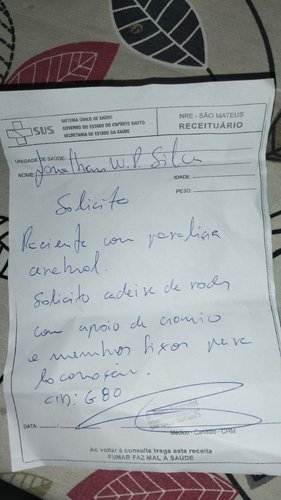 SUS
SISTEMA ÚNICO DE SAÚDE
GOVERNO DO ESTADO DO ESPÍRITO SANTO
SECRETARIA DE ESTADO DA SAÚDE
NRE - SÃO MATEUS
RECEITUÁRIO
UNIDADE DE SAÚDE:
NOME: Jonathan W. P. Silva
IDADE:
PESO:
Solicito
Paciente com paralisia
cerebral.
Solicito cadeira de rodas
com apoio de cranio
e membros fixos para
locomoção.
CID: G80
DATA:
Médico - Carimbo - CRM
Ao voltar à consulta traga esta receita
FUMAR FAZ MAL À SAÚDE